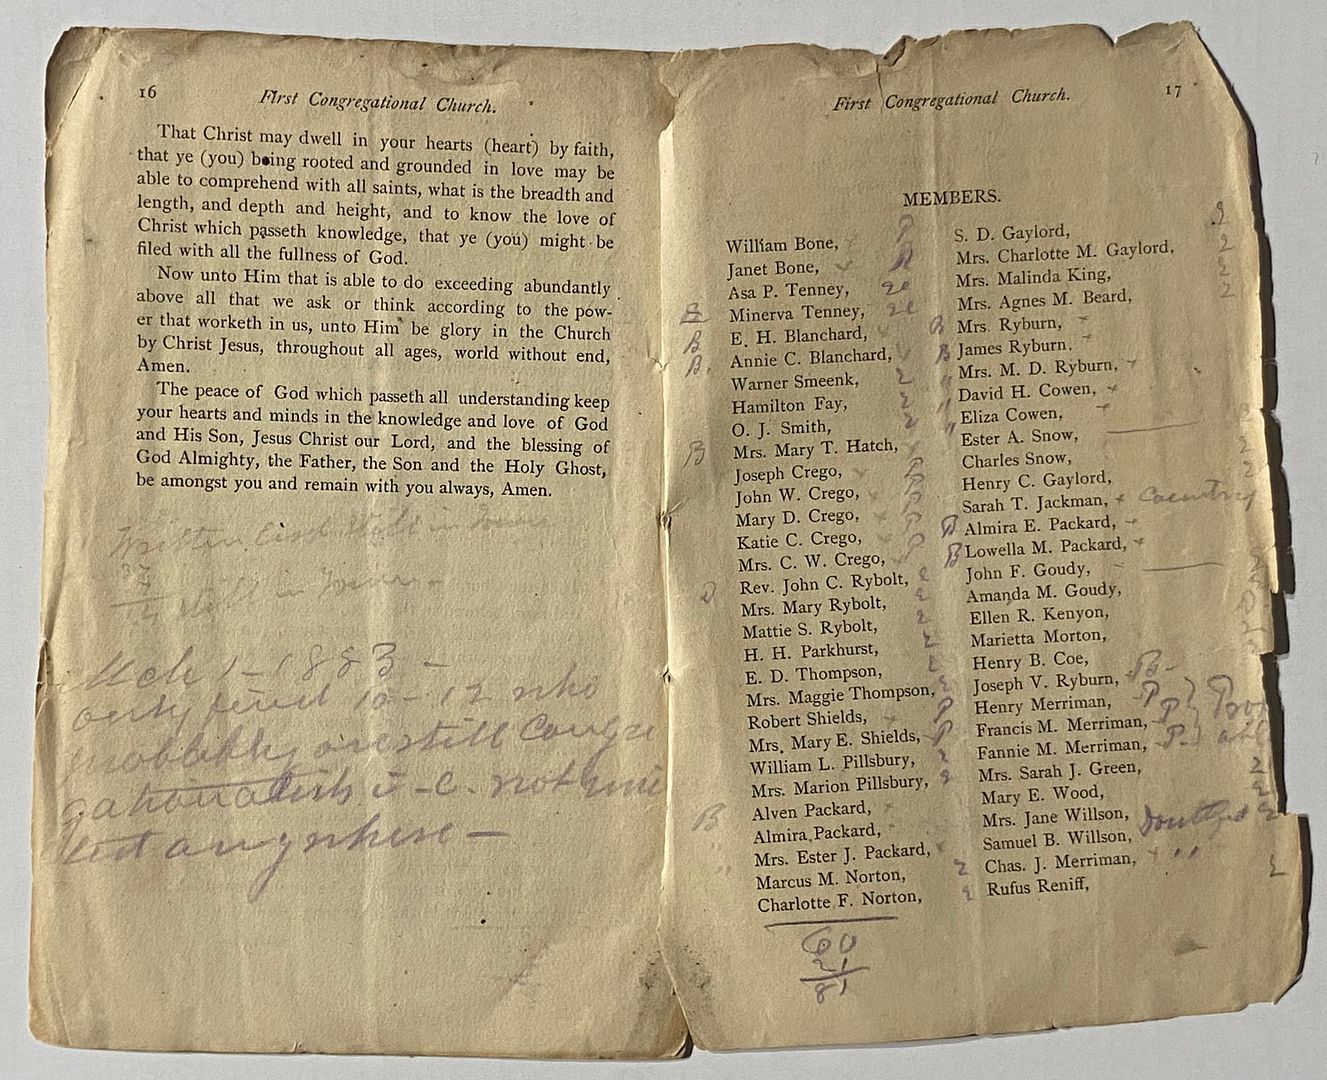 16
First Congregational Church.
That Christ may dwell in your hearts (heart) by faith,
that ye (you) being rooted and grounded in love may be
able to comprehend with all saints, what is the breadth and
length, and depth and height, and to know the love of
Christ which passeth knowledge, that ye (you) might be
filed with all the fullness of God.
Now unto Him that is able to do exceeding abundantly
above all that we ask or think according to the pow-
er that worketh in us, unto Him be glory in the Church
by Christ Jesus, throughout all ages, world without end,
Amen.
The peace of God which passeth all understanding keep
your hearts and minds in the knowledge and love of God
and His Son, Jesus Christ our Lord, and the blessing of
God Almighty, the Father, the Son and the Holy Ghost,
be amongst you and remain with you always, Amen.
Written
1883 –
10 – 12 who
probably are still Congre
gationalists not
anywhere –
First Congregational Church.
17
MEMBERS.
William Bone, P
Janet Bone, P
Asa P. Tenney,
Minerva Tenney,
B E. H. Blanchard,
B Annie C. Blanchard,
Warner Smeenk,
Hamilton Fay,
O. J. Smith,
B Mrs. Mary T. Hatch,
Joseph Crego, P
John W. Crego, P
Mary D. Crego, P
Katie C. Crego, P
Mrs. C. W. Crego, P
Rev. John C. Rybolt,
Mrs. Mary Rybolt,
Mattie S. Rybolt,
H. H. Parkhurst,
E. D. Thompson,
Mrs. Maggie Thompson,
Robert Shields, P
Mrs. Mary E. Shields, P
William L. Pillsbury,
Mrs. Marion Pillsbury,
B Alven Packard,
" Almira Packard,
" Mrs. Ester J. Packard,
Marcus M. Norton,
Charlotte F. Norton,
60
21
81
S. D. Gaylord,
Mrs. Charlotte M. Gaylord,
Mrs. Malinda King,
Mrs. Agnes M. Beard,
B Mrs. Ryburn,
B James Ryburn,
" Mrs. M. D. Ryburn,
" David H. Cowen,
" Eliza Cowen,
Ester A. Snow,
Charles Snow,
Henry C. Gaylord,
Sarah T. Jackman, Country
B Almira E. Packard,
B Lowella M. Packard,
John F. Goudy,
Amanda M. Goudy,
Ellen R. Kenyon,
Marietta Morton,
Henry B. Coe,
Joseph V. Ryburn, B –
Henry Merriman, P
Francis M. Merriman, P
Fannie M. Merriman, P
Mrs. Sarah J. Green,
Mary E. Wood,
Mrs. Jane Willson,
Samuel B. Willson,
Chas. J. Merriman, "
Rufus Reniff,